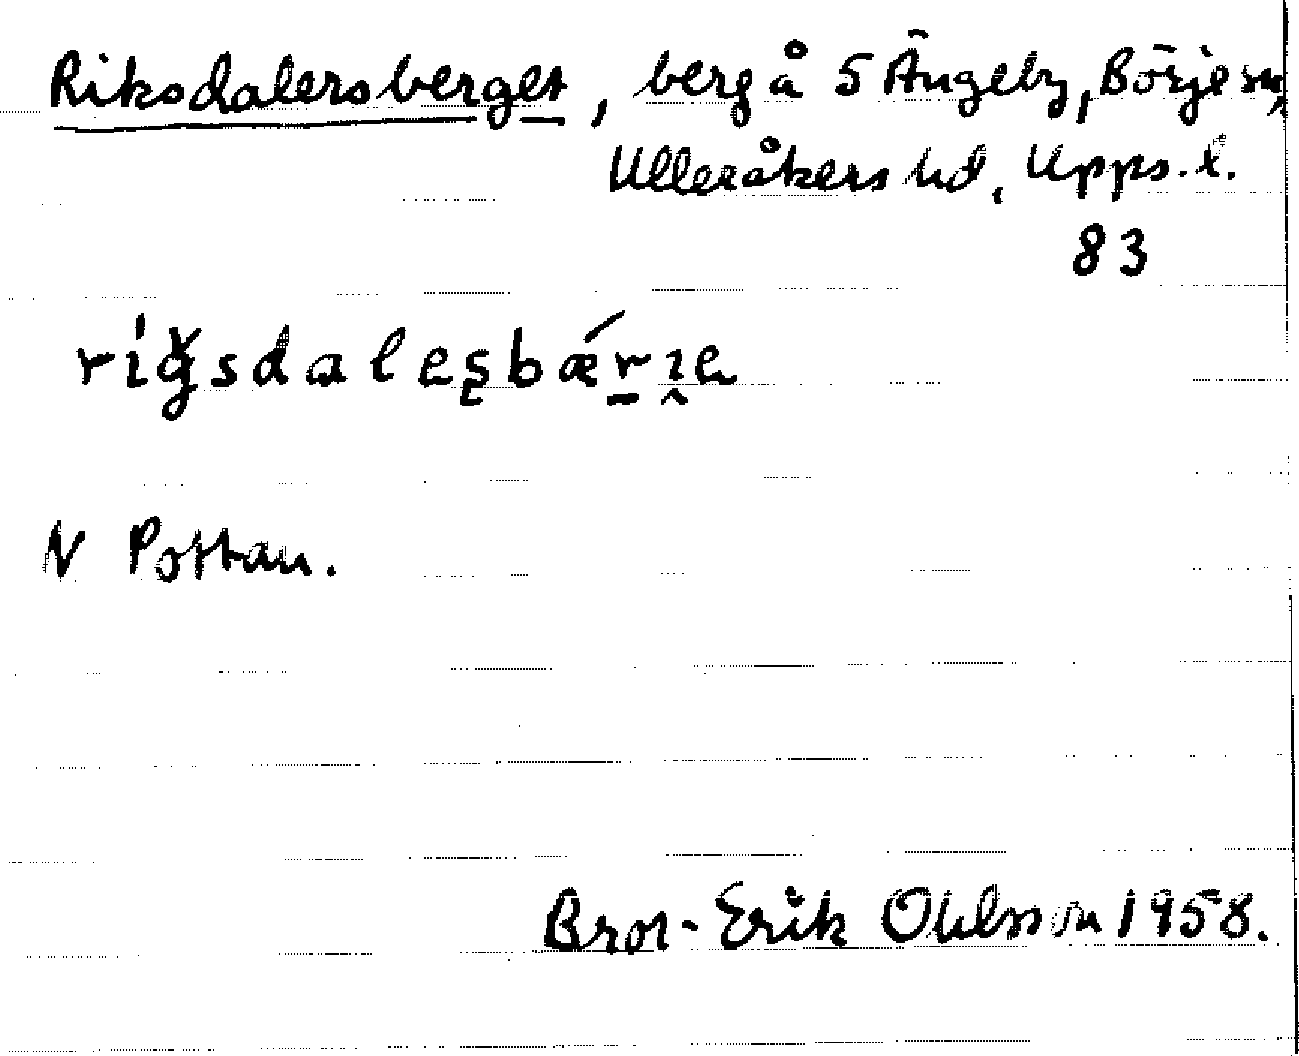 Riksdalersberget, berg å S Ängeby, Börje sn,
Ulleråkers hd, Upps. l.
83
N Pottan.
Bror-Erik Ohlsson 1958.